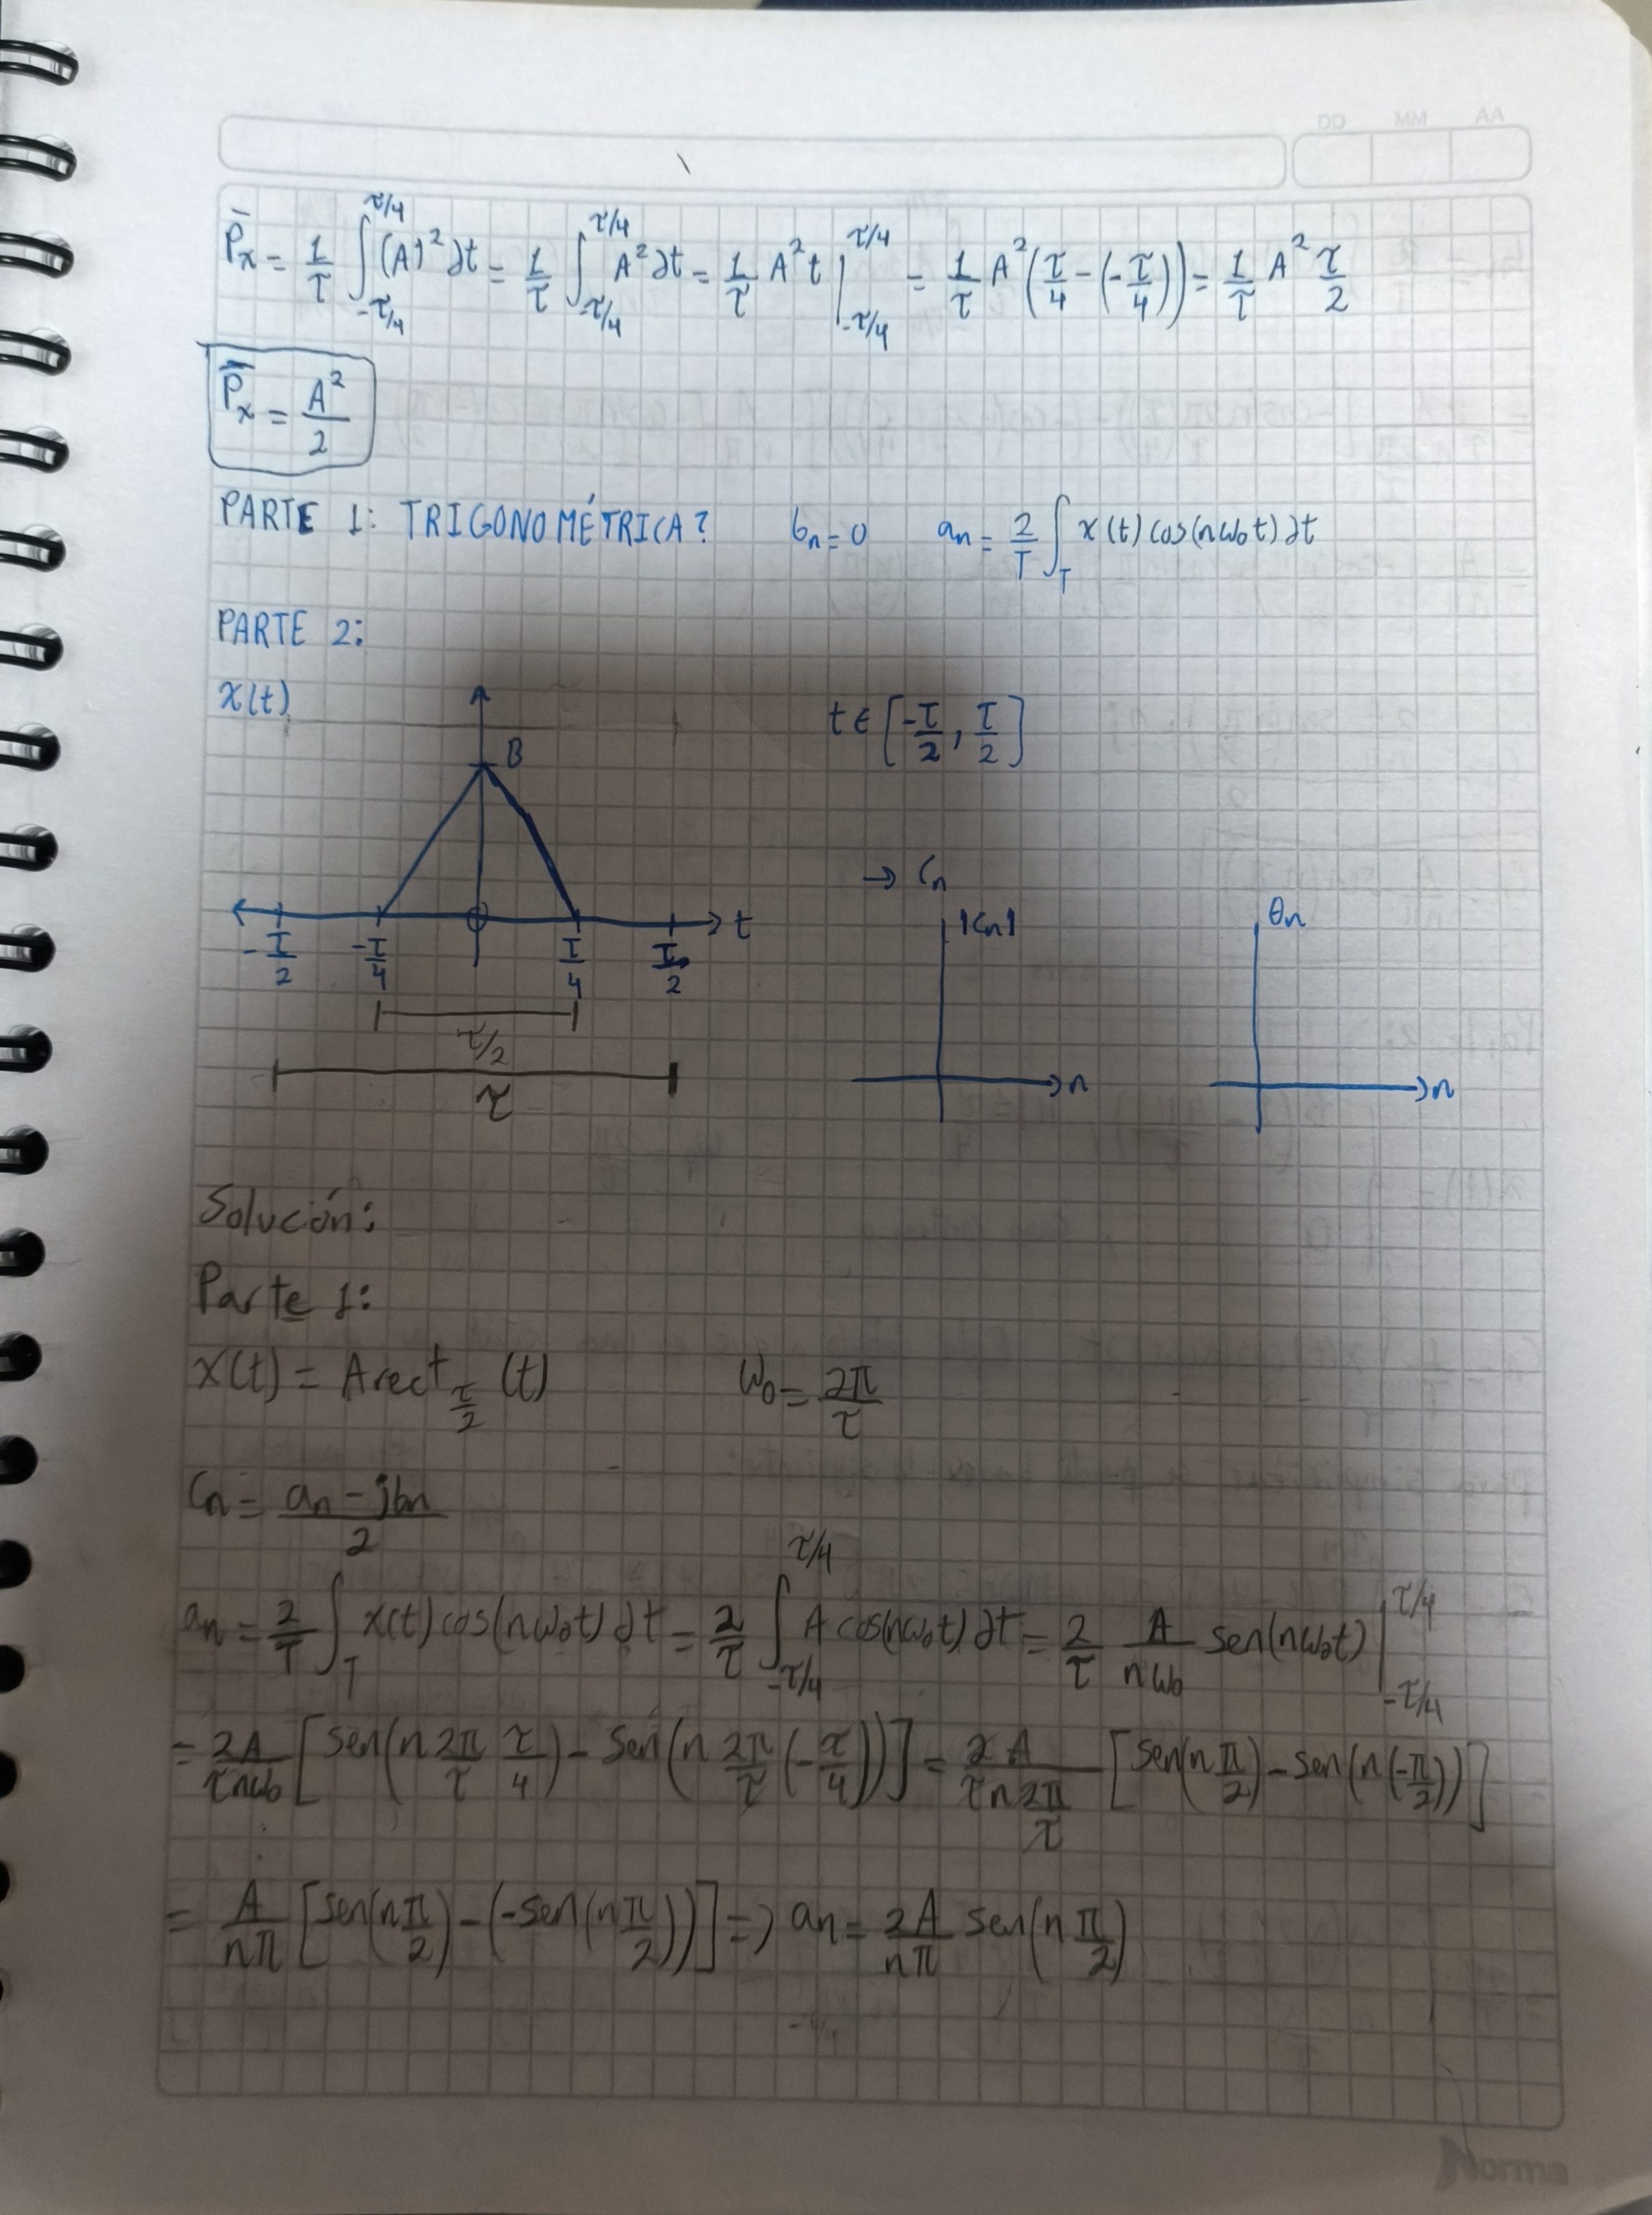 AA MM DD
P̄x = 1/τ ∫_{-τ/4}^{τ/4} (A)² dt = 1/τ ∫_{-τ/4}^{τ/4} A² dt = 1/τ A² t |_{-τ/4}^{τ/4} = 1/τ A² (τ/4 - (-τ/4)) = 1/τ A² τ/2
P̄x = A²/2
PARTE 1: TRIGONOMÉTRICA? bn = 0 an = 2/T ∫_T x(t) cos(nω₀t) dt
PARTE 2:
x(t) t ∈ [-τ/2, τ/2]
B
→ Cn
|Cn| θn
t
-τ/2 -τ/4 τ/4 τ/2
τ/2
n n
τ
Solución:
Parte 1:
x(t) = A rect_{τ/2} (t) ω₀ = 2π/τ
Cn = (an - jbn)/2
an = 2/T ∫_T x(t) cos(nω₀t) dt = 2/τ ∫_{-τ/4}^{τ/4} A cos(nω₀t) dt = 2/τ A/(nω₀) sen(nω₀t) |_{-τ/4}^{τ/4}
= 2A/(τnω₀) [sen(n 2π/τ τ/4) - sen(n 2π/τ (-τ/4))] = 2A/(τn 2π/τ) [sen(n π/2) - sen(n(-π/2))]
= A/(nπ) [sen(n π/2) - (-sen(n π/2))] => an = 2A/(nπ) sen(n π/2)
Norma